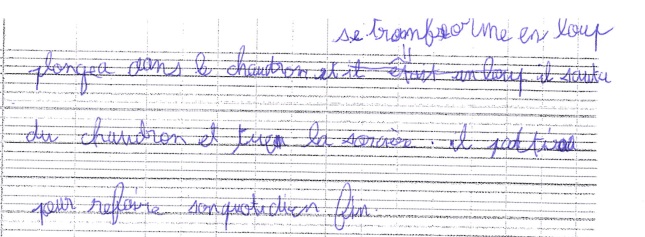 se tromforme en loup
plongea dans le chaudron et it était un loup il sauta
du chaudron et tua la sorcière. il partira
pour refaire son quotidien fin.